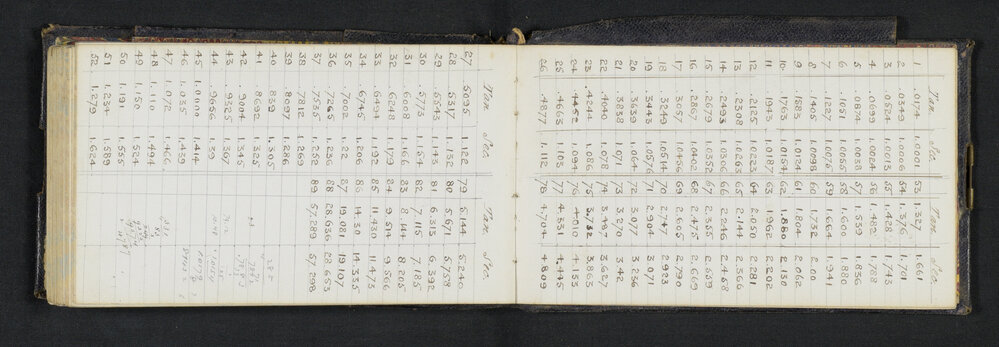 Tan. Sec. Tan Sec.
1 .0174 1.0001 53 1.327 1.661
2 .0349 1.0006 54 1.376 1.701
3 .0524 1.0013 55 1.428 1.743
4 .0699 1.0024 56 1.482 1.788
5 .0874 1.0038 57 1.539 1.836
6 .1051 1.0055 58 1.600 1.880
7 .1227 1.0075 59 1.664 1.941
8 .1405 1.0098 60 1.732 2.00
9 .1583 1.0124 61 1.804 2.062
10 .1763 1.0154 62 1.880 2.130
11 .1943 1.0187 63 1.962 2.202
12 .2125 1.0223 64 2.050 2.281
13 .2308 1.0263 65 2.144 2.366
14 .2493 1.0306 66 2.246 2.458
15 .2679 1.0352 67 2.355 2.559
16 .2867 1.0402 68 2.475 2.669
17 .3057 1.0456 69 2.605 2.790
18 .3249 1.0514 70 2.747 2.923
19 .3443 1.0576 71 2.904 3.071
20 .3639 1.064 72 3.077 3.236
21 .3838 1.071 73 3.270 3.42
22 .4040 1.078 74 3.487 3.627
23 .4244 1.086 75 3.732 3.863
24 .4452 1.094 76 4.010 4.133
25 .4663 1.103 77 4.331 4.445
26 .4877 1.112 78 4.704 4.809
Tan Sec. Tan. Sec.
27 .5095 1.122 79 5.144 5.240
28 .5317 1.135 80 5.671 5.758
29 .5543 1.143 81 6.313 6.392
30 .5773 1.154 82 7.115 7.185
31 .6008 1.166 83 8.144 8.205
32 .6248 1.179 84 9.514 9.566
33 .6494 1.192 85 11.430 11.473
34 .6745 1.206 86 14.30 14.335
35 .7002 1.22 87 19.081 19.107
36 .7265 1.236 88 28.636 28.653
37 .7535 1.252 89 57.289 57.298
38 .7812 1.269
39 .8097 1.286
40 .839 1.305
41 .8692 1.325
42 .9004 1.345
43 .9325 1.367
44 .9656 1.39
45 1.0000 1.414
46 1.035 1.439
47 1.072 1.466
48 1.110 1.494
49 1.150 1.524
50 1.191 1.555
51 1.234 1.589
52 1.279 1.624